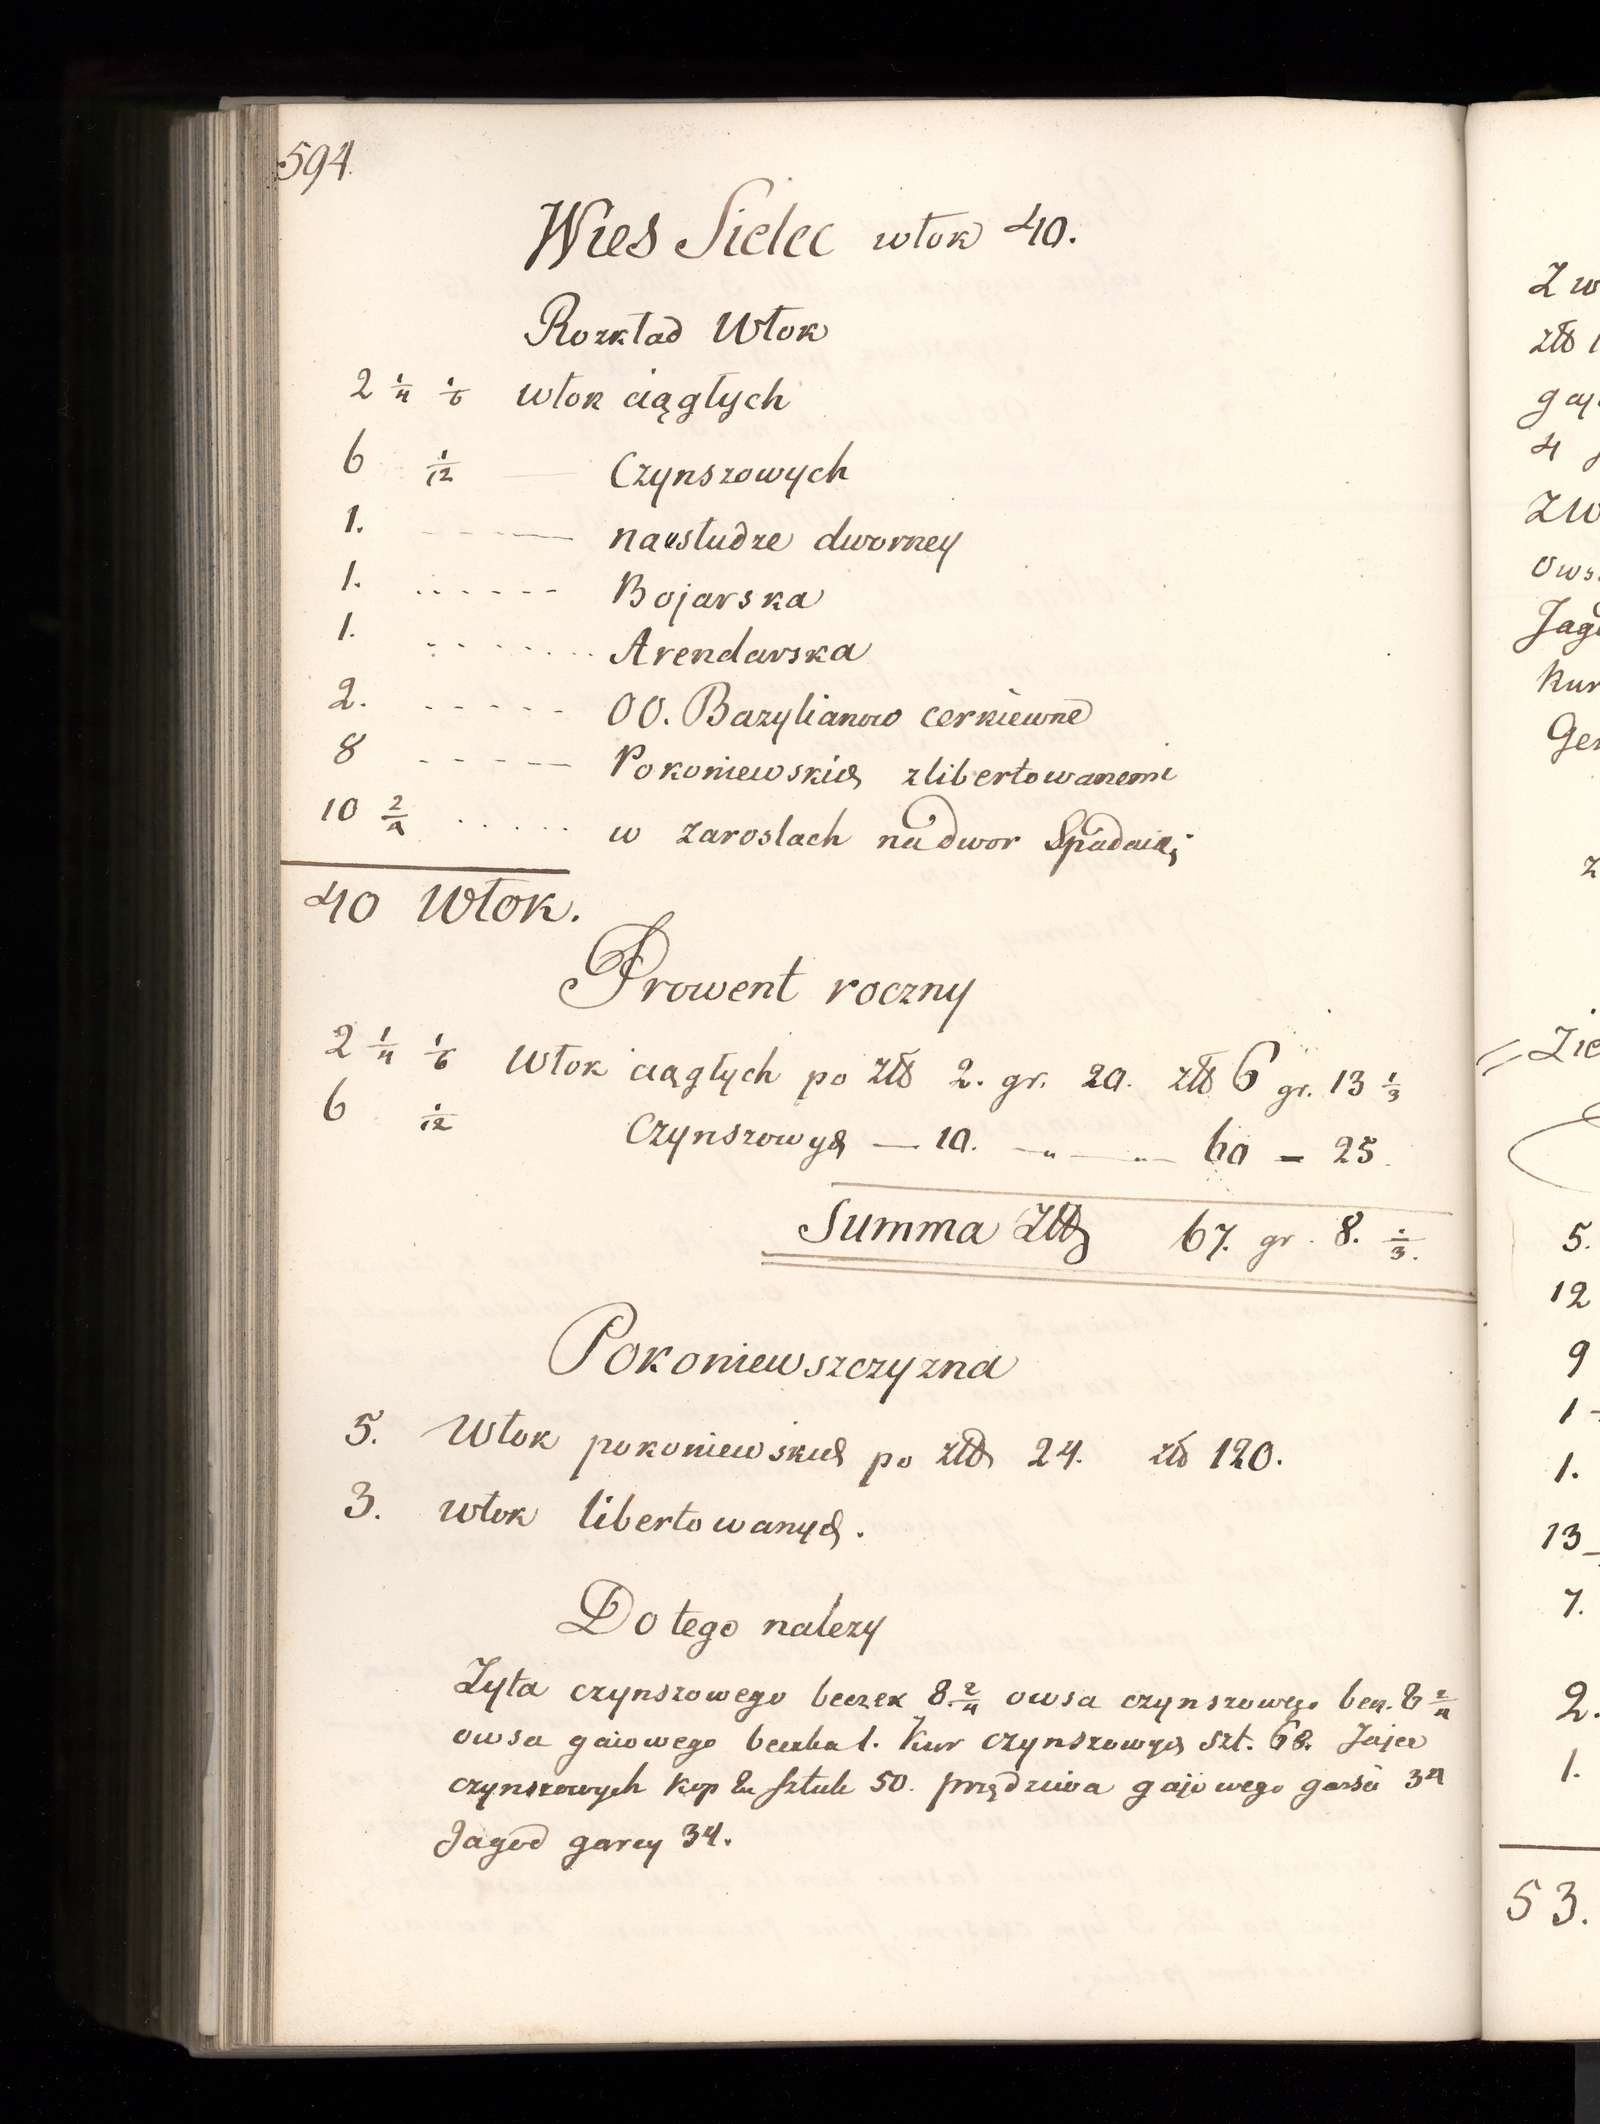 594.
Wies Sielec włok 40.
Rozkład Włok
2 1/4 1/6 włok ciągłych
6 1/12 — Czynszowych
1. - - - - na usłudze dworney
1. - - - - - - Bojarska
1. - - - - - - Arendarska
2. - - - - - OO. Bazylianow cerkiewne
8 - - - - - Pokoniewskich zlibertowanemi
10 2/4 - - - - - w zaroslach na dwor
40 Włok.
Prowent roczny
2 1/4 1/6 Włok ciągłych po złł 2. gr. 20. złł 6 gr. 13 1/3
6 1/12 Czynszowych — 10. — „ — „ — 60 — 25.
Summa Złł 67. gr. 8. 1/3.
Pokoniewszczyzna
5. Włok pokoniewskich po złł 24. złł 120.
3. włok libertowanych.
Do tego nalezy
Zyta czynszowego beczek 8. 2/4 owsa czynszowego becz. 8 2/4
owsa gaiowego beczka 1. Kur czynszowych szt. 68. Jajec
czynszowych kop sztuk 50. przędziwa gajowego garsci 34
Jagod garcy 34.
Z w
złł
4
Z w
Jag
Kur
Ger
Zie
5.
12
9
1
1.
13
7.
2.
1.
53.